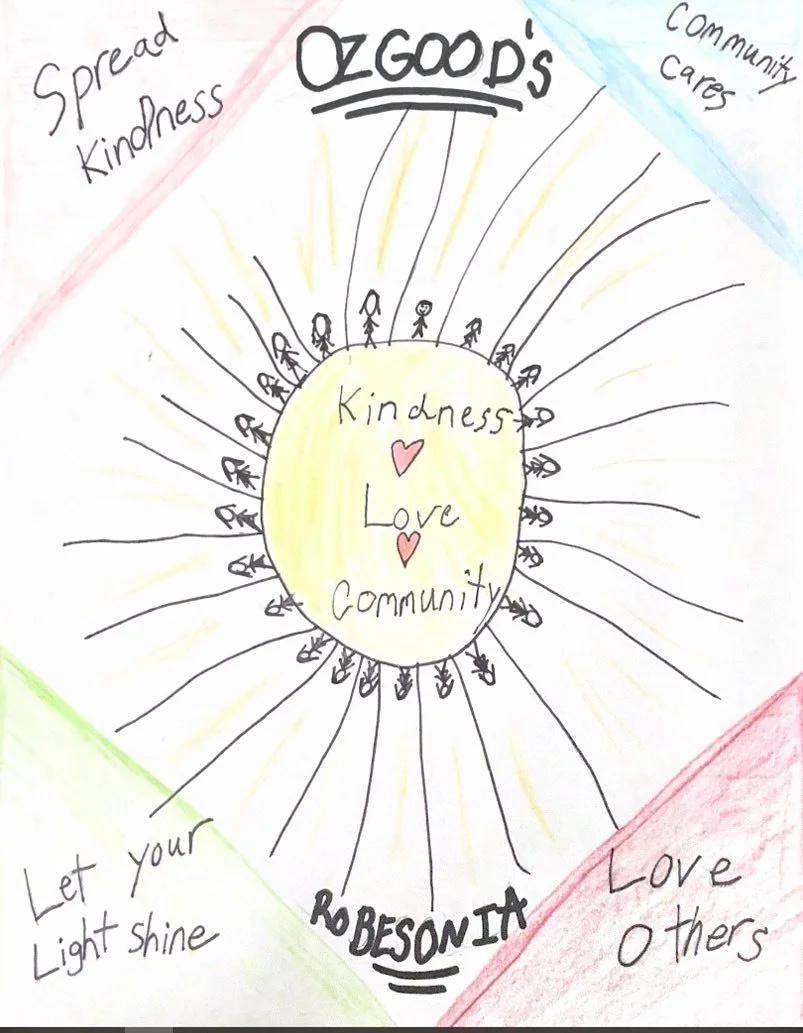 Spread
Kindness
OZGOOD's
Community
Cares
Kindness
Love
Community
Let your
Light shine
ROBESONIA
Love
Others